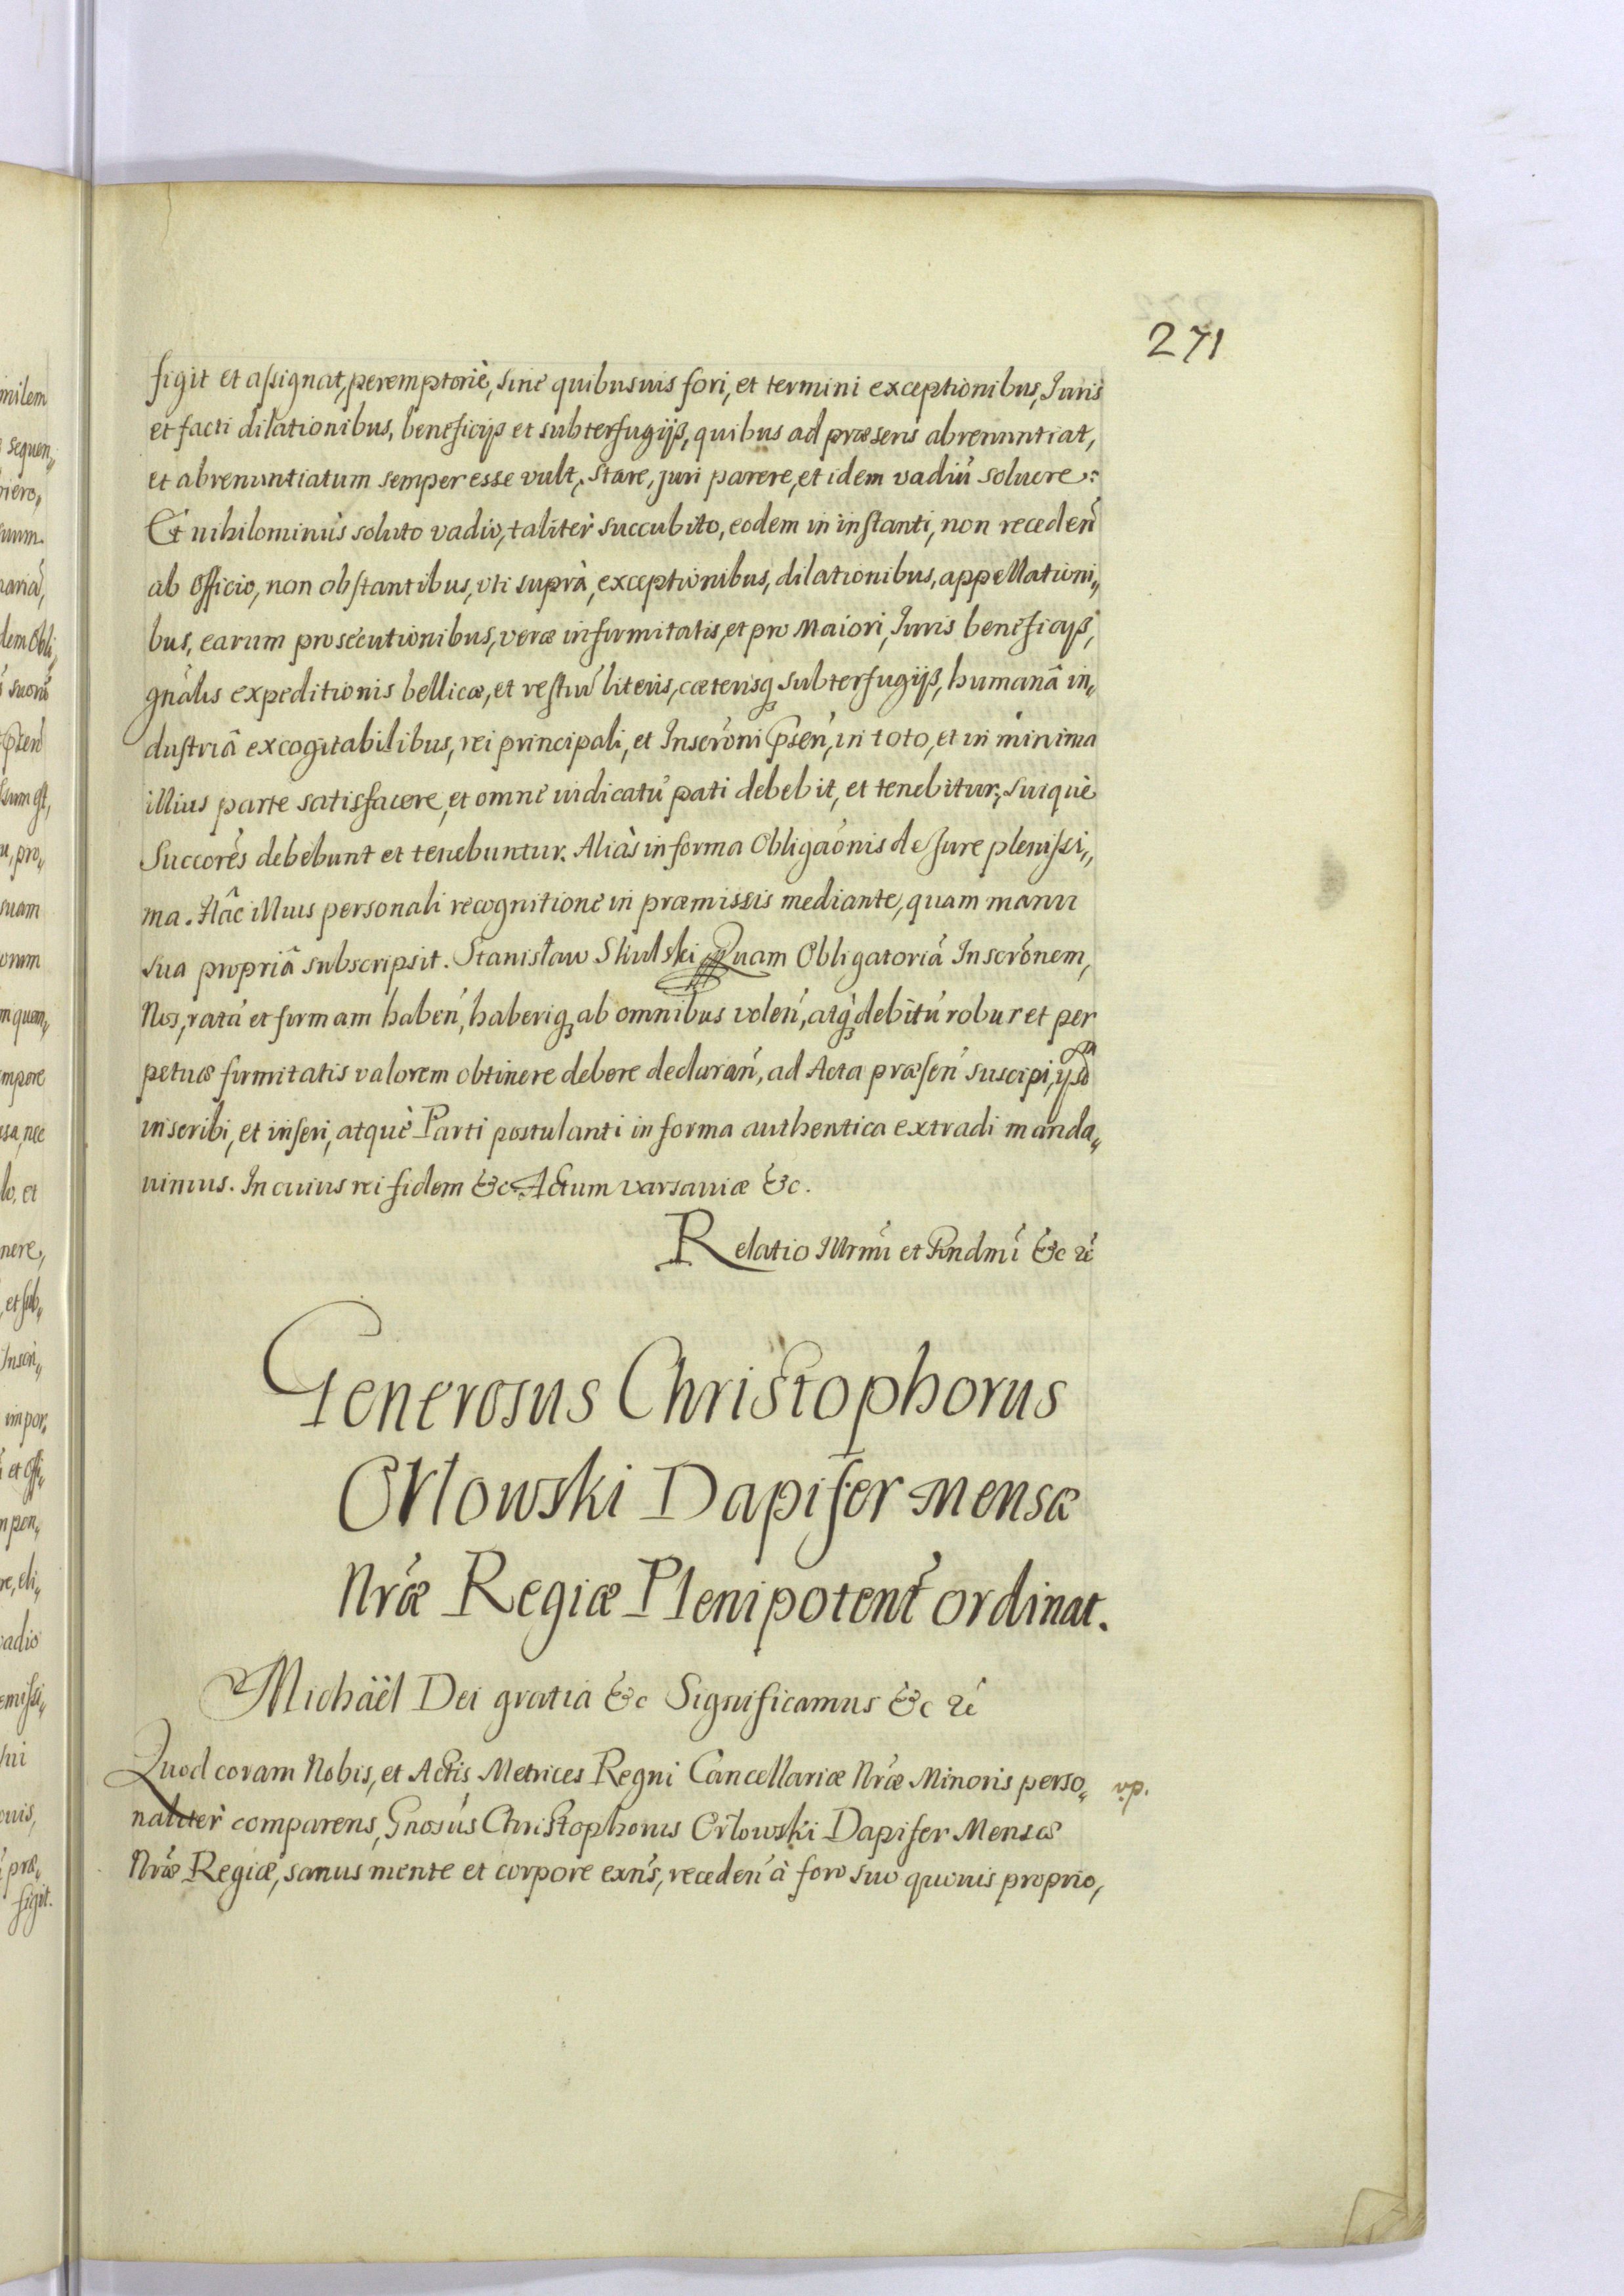 271
figit et assignat, peremptoriè, sine quibusuis fori, et termini exceptionibus, Juris
et facti dilationibus, beneficijs et subterfugijs, quibus ad præsens abrenuntiat,
et abrenuntiatum semper esse vult, stare, juri parere, et idem vadiū soluere.
Et nihilominus soluto vadio, taliter succubito, eodem in instanti, non receden̄
ab Officio, non obstantibus, vti suprà, exceptionibus, dilationibus, appellationi„
bus, earum prosecutionibus, veræ infirmitatis, et pro Maiori, Juris beneficijs,
gnālis expeditionis bellicæ, et restiū literis, cæterisq subterfugijs, humanâ in„
dustriâ excogitabilibus, rei principali, et Inscrōni Psen̄, in toto, et in minima
illius parte satisfacere, et omne iudicatū pati debebit, et tenebitur, suiquè
Succorēs debebunt et tenebuntur. Aliàs in forma Obligaōnis de Jure plenissi„
ma. Hâc illius personali recognitione in præmissis mediante, quam manu
sua propriâ subscripsit. Stanisław Skulski Quam Obligatoriā Inscrōnem,
Nos, ratā et firmam haben̄, haberiq ab omnibus volen̄, atq debitū robur et per
petuæ firmitatis valorem obtinere debere declaran̄, ad Acta præsen̄ suscipi, ijsd
inscribi, et inseri, atquè Parti postulanti in forma authentica extradi manda„
uimus. In cuius rei fidem &c Actum Varsauiæ &c.
Relatio Illrmī et Rndmī &c &
Generosus Christophorus
Orlowski Dapifer Mensæ
Nræ Regiæ Plenipoteñt ordinat.
Michäel Dei gratia &c Significamus &c &
Quod coram Nobis, et Actis Metrices Regni Cancellariæ Nræ Minoris perso„ vp.
naliter comparens, Gnosūs Christophorus Orłowski Dapifer Mensæ
Nræ Regiæ, sanus mente et corpore exns̄, receden̄ à foro suo quouis proprio,